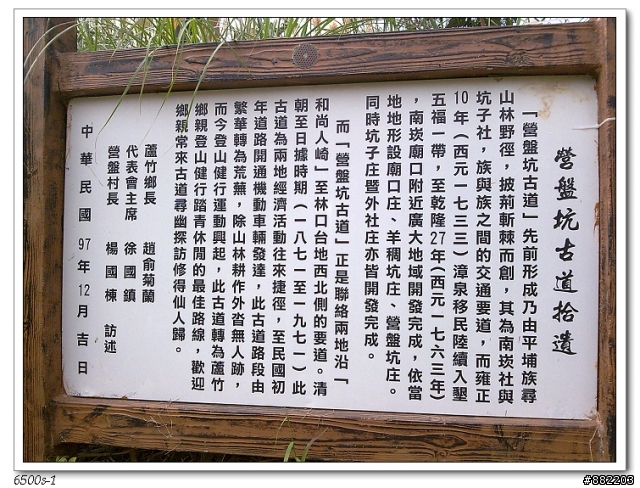 營盤坑古道拾遺
「營盤坑古道」先前形成乃由平埔族尋
山林野徑，披荊斬棘而創，其為南崁社與
坑子社，族與族之間的交通要道，而雍正
10年（西元一七三三）漳泉移民陸續入墾
五福一帶，至乾隆27年(西元一七六三年)
，南崁廟口附近廣大地域開發完成，依當
地地形設廟口庄、羊稠坑庄、營盤坑庄。
同時坑子庄暨外社庄亦皆開發完成。
而「營盤坑古道」正是聯絡兩地沿「
和尚人崎」至林口台地西北側的要道。清
朝至日據時期（一八七一至一九七一）此
古道為兩地經濟活動往來捷徑，至民國初
年道路開通機動車輛發達，此古道路段由
繁華轉為荒蕪，除山林耕作外沓無人跡，
而今登山健行運動興起，此古道轉為蘆竹
鄉親登山健行踏青休閒的最佳路線，歡迎
鄉親常來古道尋幽探訪修得仙人歸。
蘆竹鄉長 趙俞菊蘭
代表會主席 徐國鎮
營盤村長 楊國棟 訪述
中華民國97年12月吉日
6500s-1
#882203